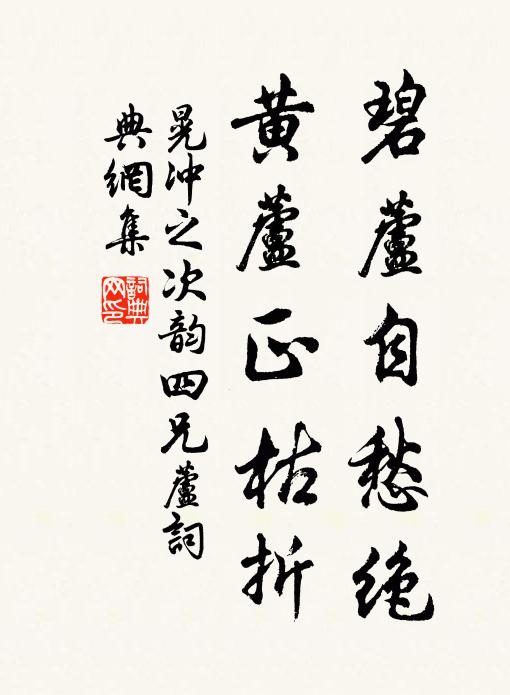 碧蘆自愁絶
黄蘆正枯折
晁冲之次韵四兄蘆詞
典網集
詞典网印